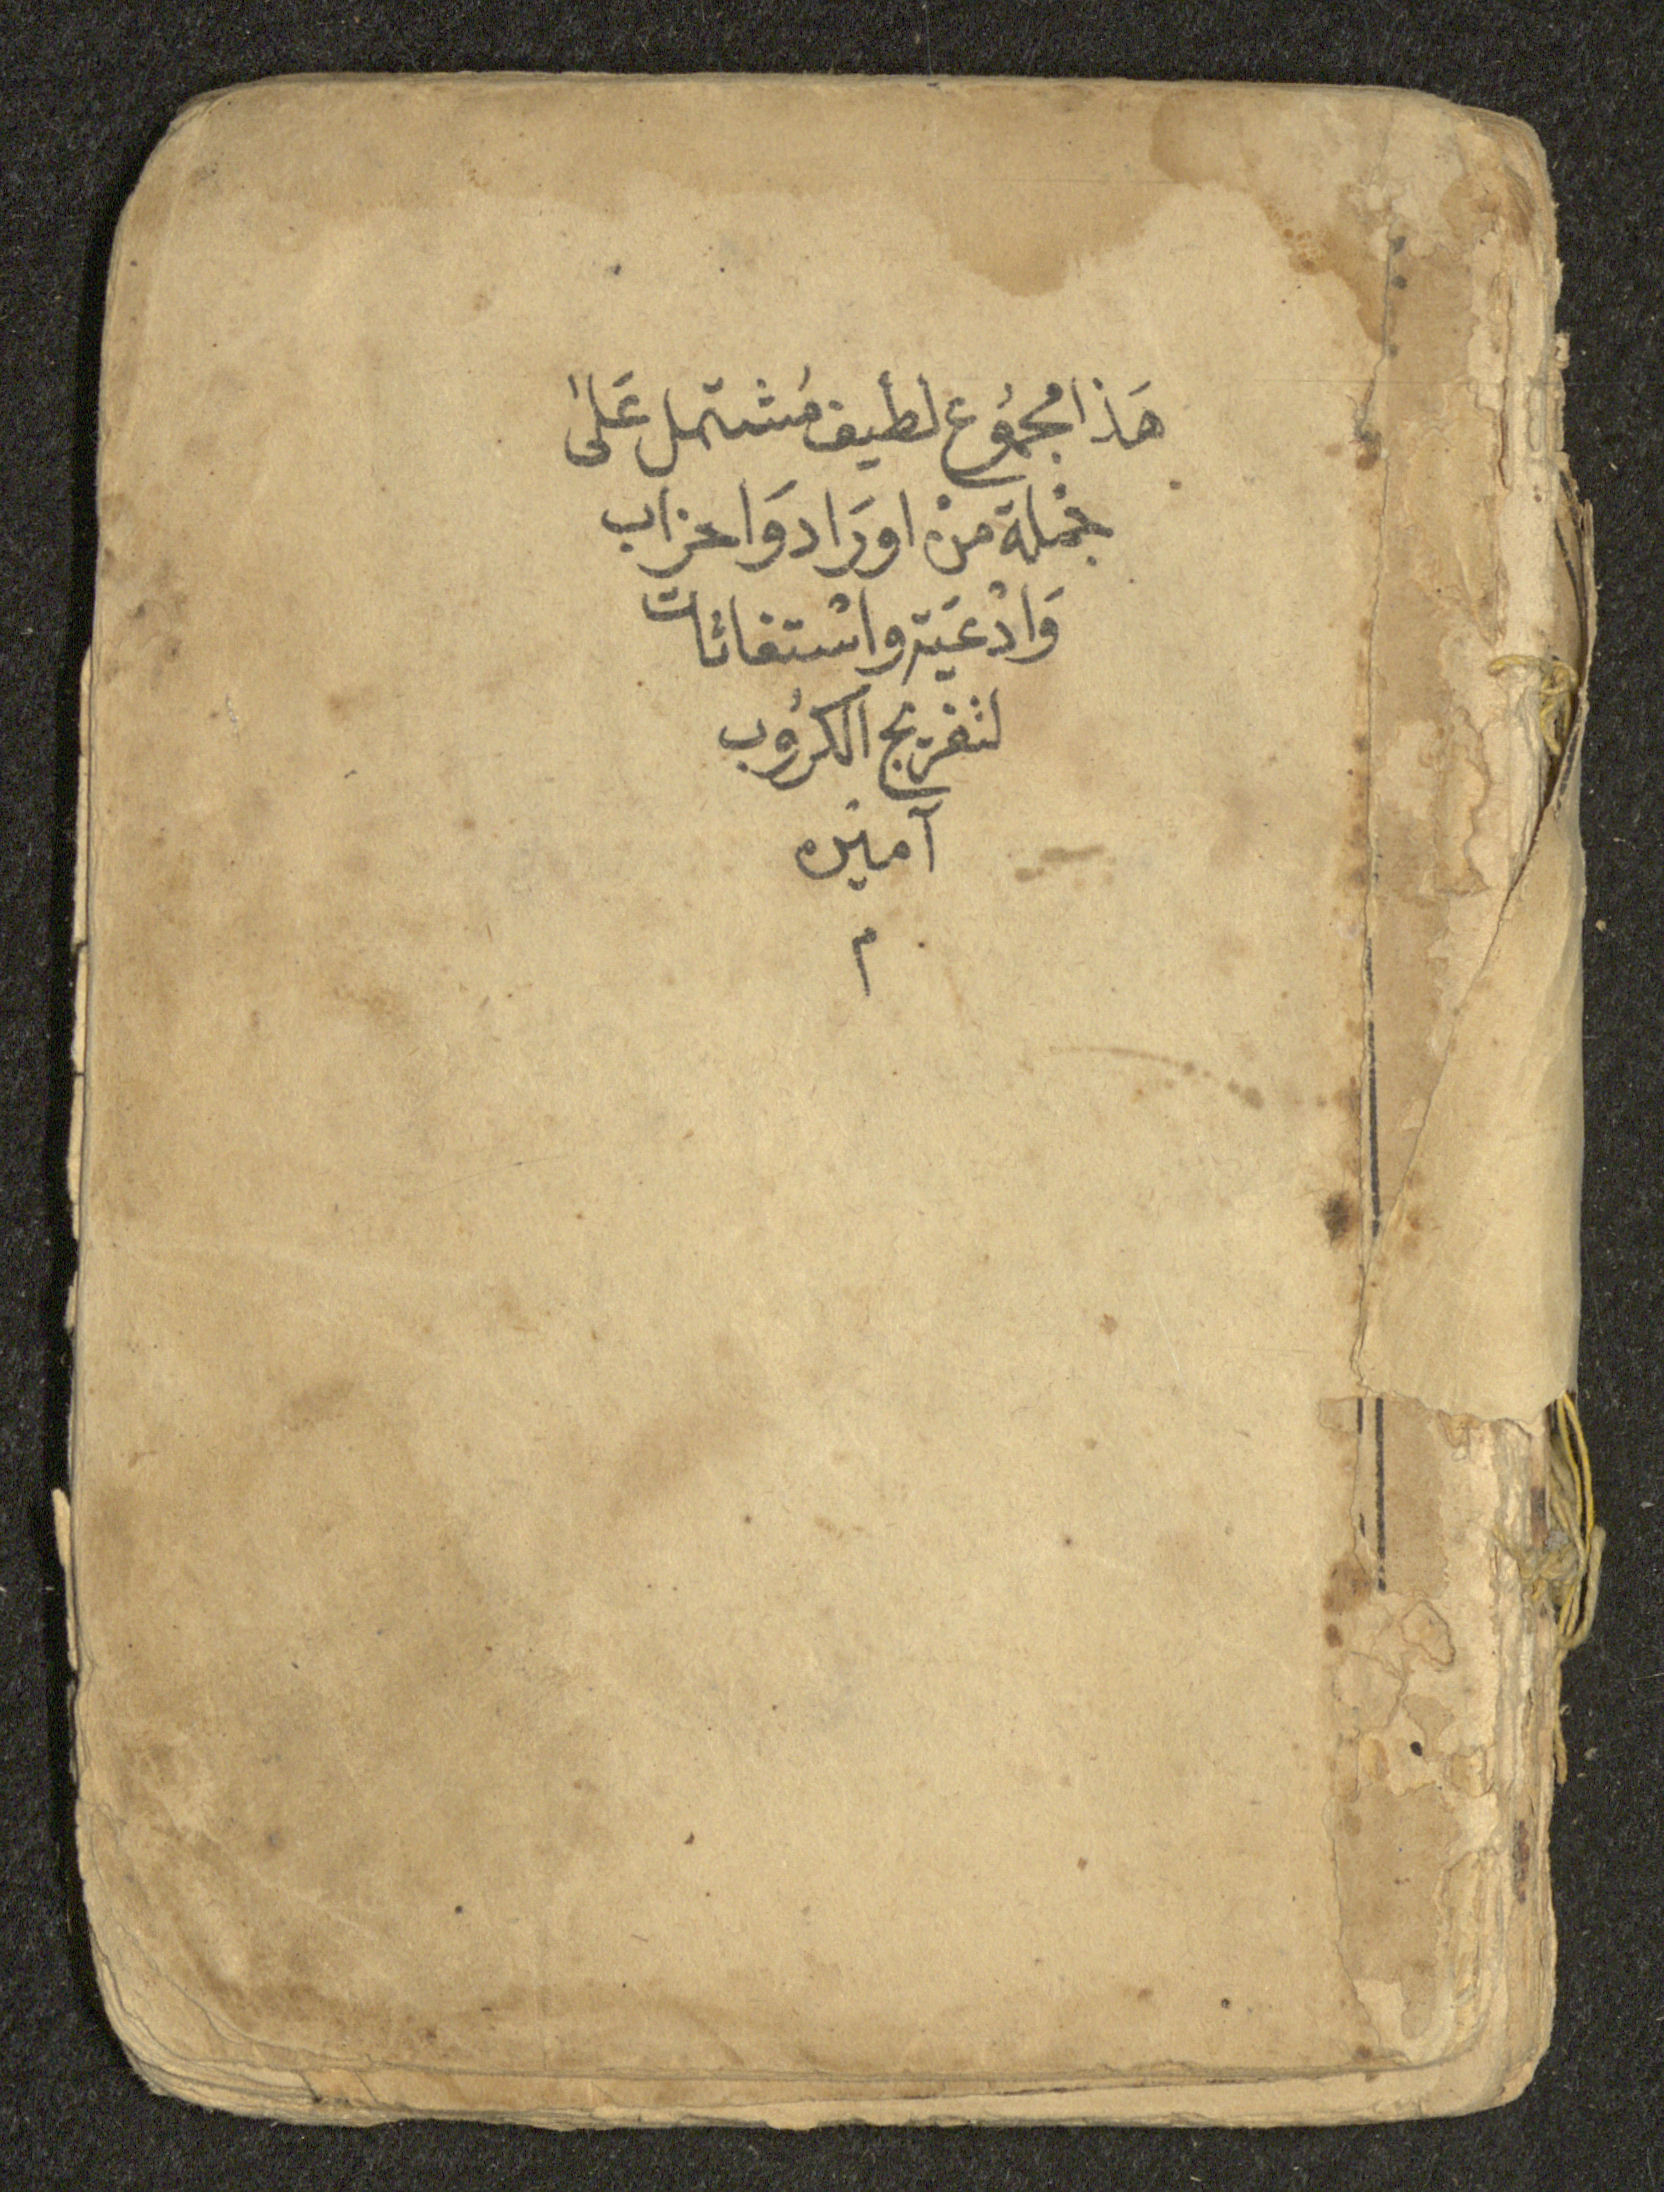 هَذا مجمُوع لطيف مُشتمل عَلىٰ
جُملة منْ اورَاد وَاحزاب
وَادْعيَة واسْتغاثات
لتفريج الكرُوب
آمين
م